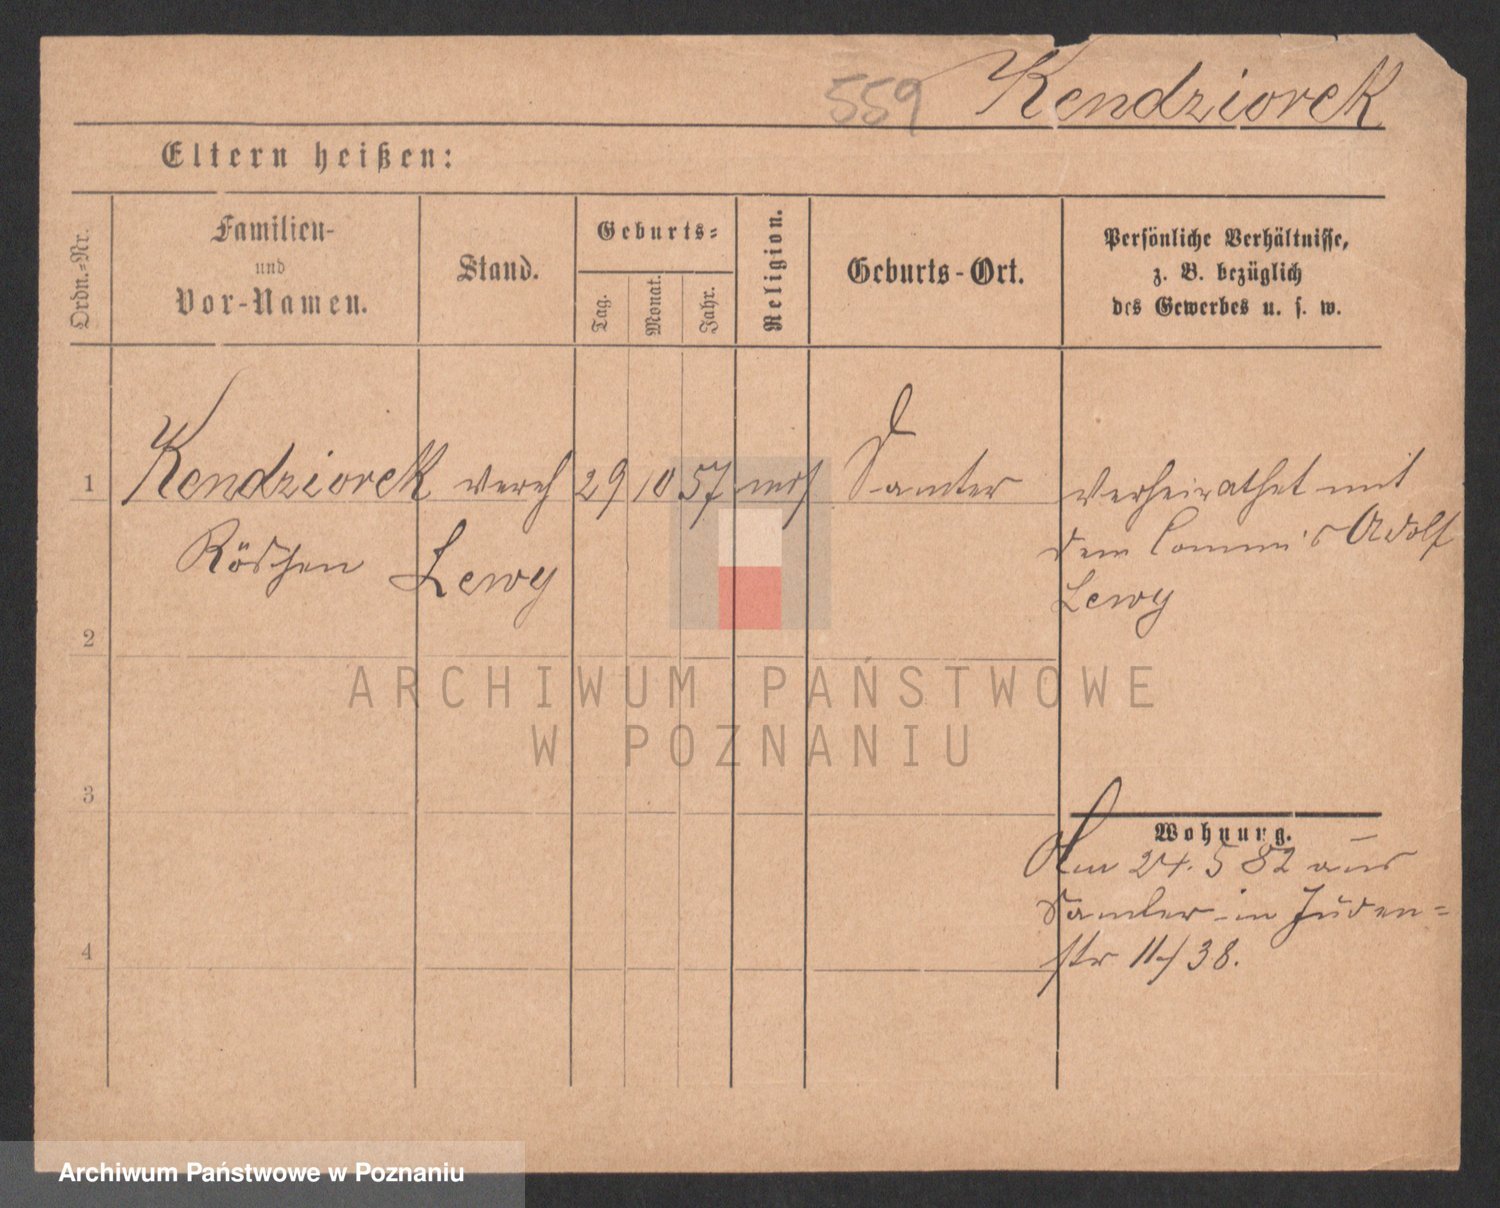 559 Kendziorek
Eltern heißen:
Ordn.-Nr.
Familien-
und
Vor-Namen.
Stand.
Geburts-
Tag.
Monat.
Jahr.
Religion.
Geburts-Ort.
Persönliche Verhältnisse,
z. B. bezüglich
des Gewerbes u. s. w.
1 Kendziorek vereh 29 10 57 mos Samter verheirathet mit
Röschen Lewy dem Commis Adolf
Lewy
2
3
4
Wohnung.
Am 24. 5 82 aus
Samter in Juden=
str 11/38.
ARCHIWUM PAŃSTWOWE
W POZNANIU
Archiwum Państwowe w Poznaniu